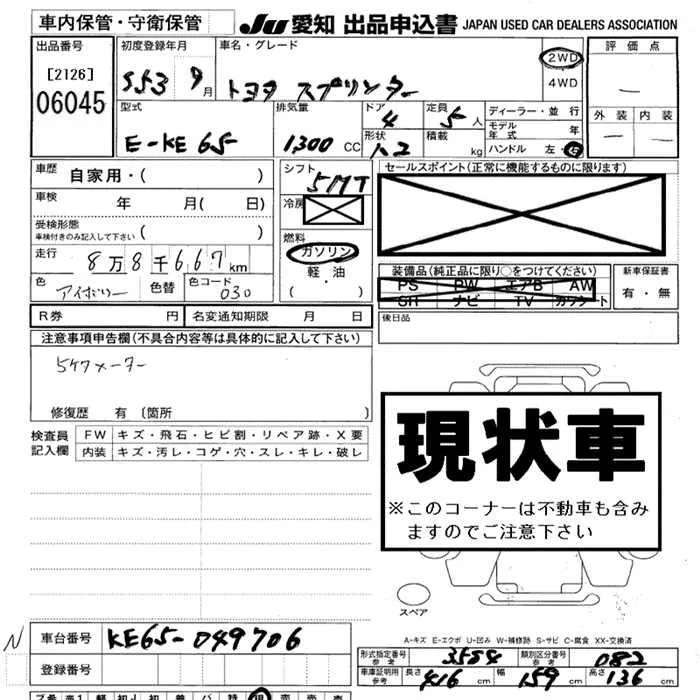 車内保管・守衛保管 JU 愛知 出品申込書 JAPAN USED CAR DEALERS ASSOCIATION
出品番号 初度登録年月 車名・グレード 2WD 評価点
[2126] S53 9月 トヨタ スプリンター 4WD
06045 型式 排気量 ドア 4 定員 5人 ディーラー・並行 外装 内装
モデル年式 年
E-KE65 1300 CC 形状 積載 kg ハンドル 左・右
車歴 自家用・( ) シフト 5MT セールスポイント(正常に機能するものに限ります)
車検 年 月( 日) 冷房
受検形態
車検付きのみ記入して下さい 燃料
走行 8万8千667km ガソリン
軽・油 装備品(純正品に限り○をつけてください) 新車保証書
色 アイボリー 色替 色コード 030 ( ・ ) PS PW エアB AW 有・無
SR ナビ TV カワシート
R券 円 名変通知期限 月 日 後日品
注意事項申告欄(不具合内容等は具体的に記入して下さい)
5ケタメーター
修復歴 有〔箇所 〕
現状車
※このコーナーは不動車も含み
ますのでご注意下さい
検査員 FW キズ・飛石・ヒビ割・リペア跡・X要
記入欄 内装 キズ・汚レ・コゲ・穴・スレ・キレ・破レ
スペア
A-キズ E-エクボ U-凹み W-補修跡 S-サビ C-腐食 XX-交換済
N 車台番号 KE65-049706
形式指定番号 参考 3554 類別区分番号 参考 082
登録番号 車庫証明用 参考 長さ 416 cm 幅 159 cm 高さ 136 cm